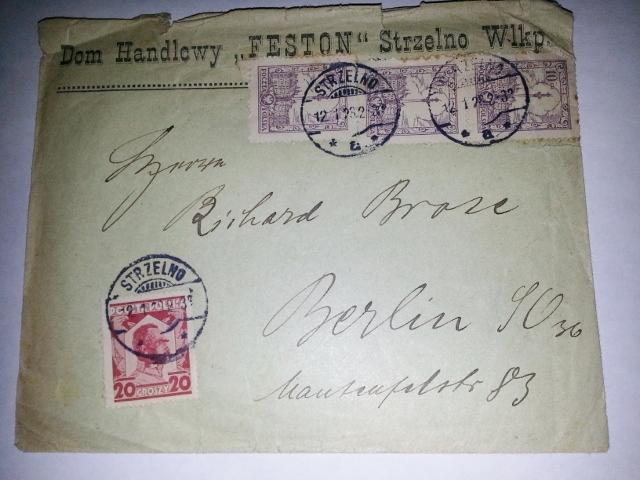 Dom Handlowy „FESTON" Strzelno Wlkp.
STRZELNO
12.1.28.2
* a *
12.1.28.2-32
* a *
10
Herrn
Richard Brose
Berlin SO 36
Manteufelstr 83
STRZELNO
POCZTA POLSKA
20 GROSZY 20